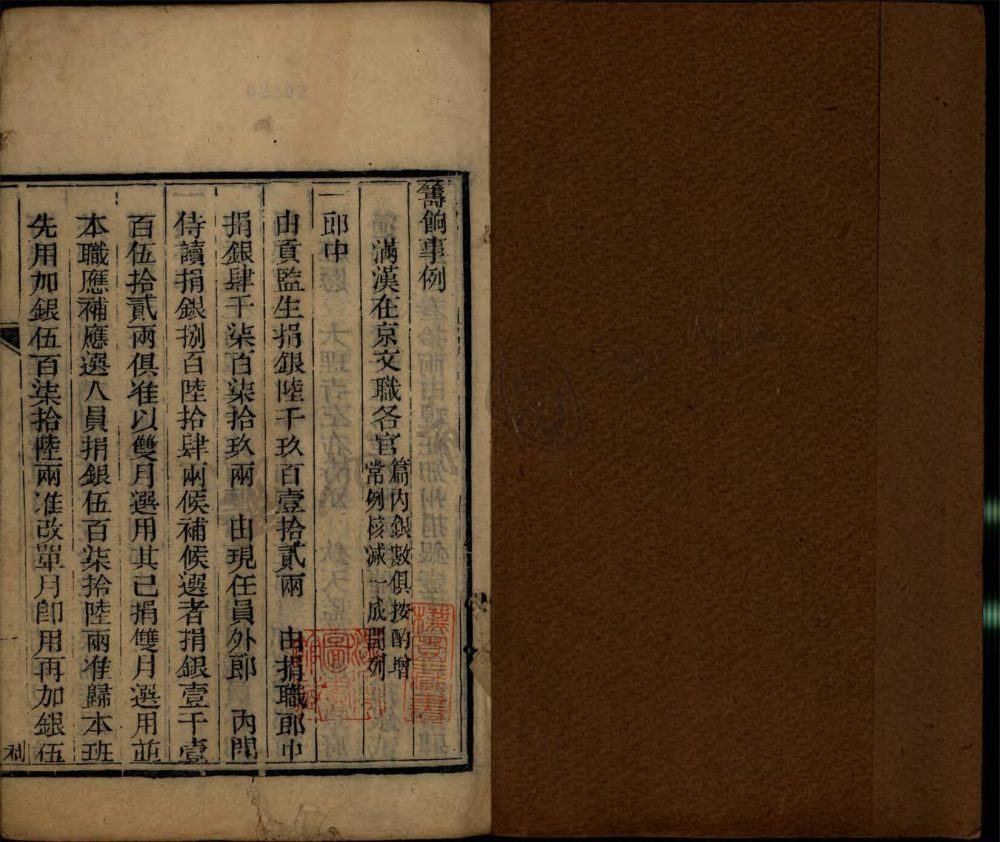 籌餉事例
滿漢在京文職各官
篇內銀數俱按酌增
常例核減一成開列
一郎中
由貢監生捐銀陸千玖百壹拾貳兩 由捐職郎中
捐銀肆千柒百柒拾玖兩 由現任員外郎 內閣
侍讀捐銀捌百陸拾肆兩候補候選者捐銀壹千壹
百伍拾貳兩俱准以雙月選用其已捐雙月選用並
本職應補應選人員捐銀伍百柒拾陸兩准歸本班
先用加銀伍百柒拾陸兩准改單月卽用再加銀伍